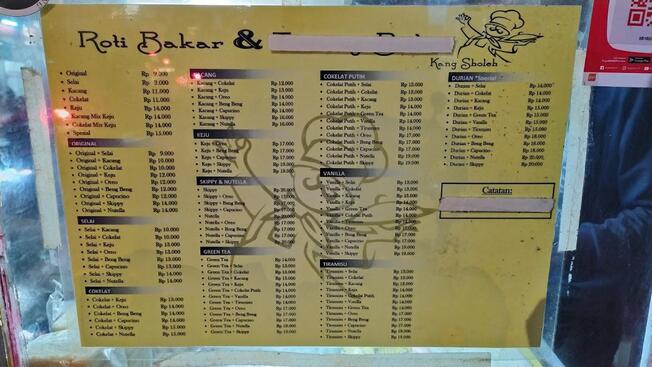 Roti Bakar &
Kang Sholeh
Original Rp 9.000
Selai Rp 9.000
Kacang Rp 11.000
Cokelat Rp 11.000
Keju Rp 14.000
Kacang Mix Keju Rp 14.000
Cokelat Mix Keju Rp 14.000
Spesial Rp 15.000
ORIGINAL
Original + Selai Rp 9.000
Original + Kacang Rp 10.000
Original + Cokelat Rp 10.000
Original + Keju Rp 12.000
Original + Oreo Rp 12.000
Original + Beng Beng Rp 12.000
Original + Capucino Rp 12.000
Original + Skippy Rp 14.000
Original + Nutella Rp 14.000
SELAI
Selai + Kacang Rp 10.000
Selai + Cokelat Rp 10.000
Selai + Keju Rp 13.000
Selai + Oreo Rp 13.000
Selai + Beng Beng Rp 13.000
Selai + Capucino Rp 13.000
Selai + Skippy Rp 14.000
Selai + Nutella Rp 14.000
COKELAT
Cokelat + Keju Rp 13.000
Cokelat + Oreo Rp 14.000
Cokelat + Beng Beng Rp 14.000
Cokelat + Capucino Rp 14.000
Cokelat + Skippy Rp 15.000
Cokelat + Nutella Rp 15.000
KACANG
Kacang + Cokelat Rp 12.000
Kacang + Keju Rp 14.000
Kacang + Oreo Rp 14.000
Kacang + Beng Beng Rp 14.000
Kacang + Capucino Rp 14.000
Kacang + Skippy Rp 16.000
Kacang + Nutella Rp 16.000
KEJU
Keju + Oreo Rp 17.000
Keju + Beng Beng Rp 17.000
Keju + Capucino Rp 17.000
Keju + Skippy Rp 19.000
Keju + Nutella Rp 19.000
SKIPPY & NUTELLA
Skippy Rp 20.000
Skippy + Oreo
Skippy + Beng Beng
Skippy + Capucino
Nutella
Nutella + Oreo
Nutella + Beng Beng
Nutella + Capucino
Nutella + Skippy
GREEN TEA
Green Tea Rp 14.000
Green Tea + Selai Rp 13.000
Green Tea + Cokelat Rp 13.000
Green Tea + Kacang Rp 13.000
Green Tea + Keju Rp 14.000
Green Tea + Cokelat Putih Rp 14.000
Green Tea + Vanilla Rp 14.000
Green Tea + Oreo Rp 17.000
Green Tea + Beng Beng Rp 17.000
Green Tea + Capucino Rp 17.000
Green Tea + Nutella Rp 19.000
Green Tea + Skippy Rp 19.000
COKELAT PUTIH
Cokelat Putih + Selai Rp 13.000
Cokelat Putih + Cokelat Rp 13.000
Cokelat Putih + Kacang Rp 13.000
Cokelat Putih + Keju Rp 14.000
Cokelat Putih + Green Tea Rp 14.000
Cokelat Putih + Vanilla Rp 14.000
Cokelat Putih + Tiramisu Rp 14.000
Cokelat Putih + Oreo Rp 17.000
Cokelat Putih + Beng Beng Rp 17.000
Cokelat Putih + Capucino Rp 17.000
Cokelat Putih + Nutella Rp 19.000
Cokelat Putih + Skippy Rp 19.000
VANILLA
Vanilla + Selai Rp 13.000
Vanilla + Cokelat Rp 13.000
Vanilla + Kacang Rp 13.000
Vanilla + Keju Rp 14.000
Vanilla + Green Tea Rp 14.000
Vanilla + Cokelat Putih Rp 14.000
Vanilla + Tiramisu Rp 14.000
Vanilla + Oreo Rp 17.000
Vanilla + Beng Beng Rp 17.000
Vanilla + Capucino Rp 17.000
Vanilla + Nutella Rp 19.000
Vanilla + Skippy Rp 19.000
TIRAMISU
Tiramisu + Selai Rp 13.000
Tiramisu + Cokelat Rp 13.000
Tiramisu + Kacang Rp 13.000
Tiramisu + Keju Rp 14.000
Tiramisu + Cokelat Putih Rp 14.000
Tiramisu + Vanilla Rp 14.000
Tiramisu + Green Tea Rp 14.000
Tiramisu + Oreo Rp 17.000
Tiramisu + Beng Beng Rp 17.000
Tiramisu + Capucino Rp 17.000
Tiramisu + Nutella Rp 19.000
Tiramisu + Skippy Rp 19.000
DURIAN "Spesial"
Durian + Selai Rp 14.000
Durian + Cokelat Rp 14.000
Durian + Kacang Rp 14.000
Durian + Keju Rp 15.000
Durian + Green Tea Rp 15.000
Durian + Vanilla Rp 15.000
Durian + Tiramisu Rp 15.000
Durian + Oreo Rp 18.000
Durian + Beng Beng Rp 18.000
Durian + Capucino Rp 18.000
Durian + Nutella Rp 20.000
Durian + Skippy Rp 20.000
Catatan: